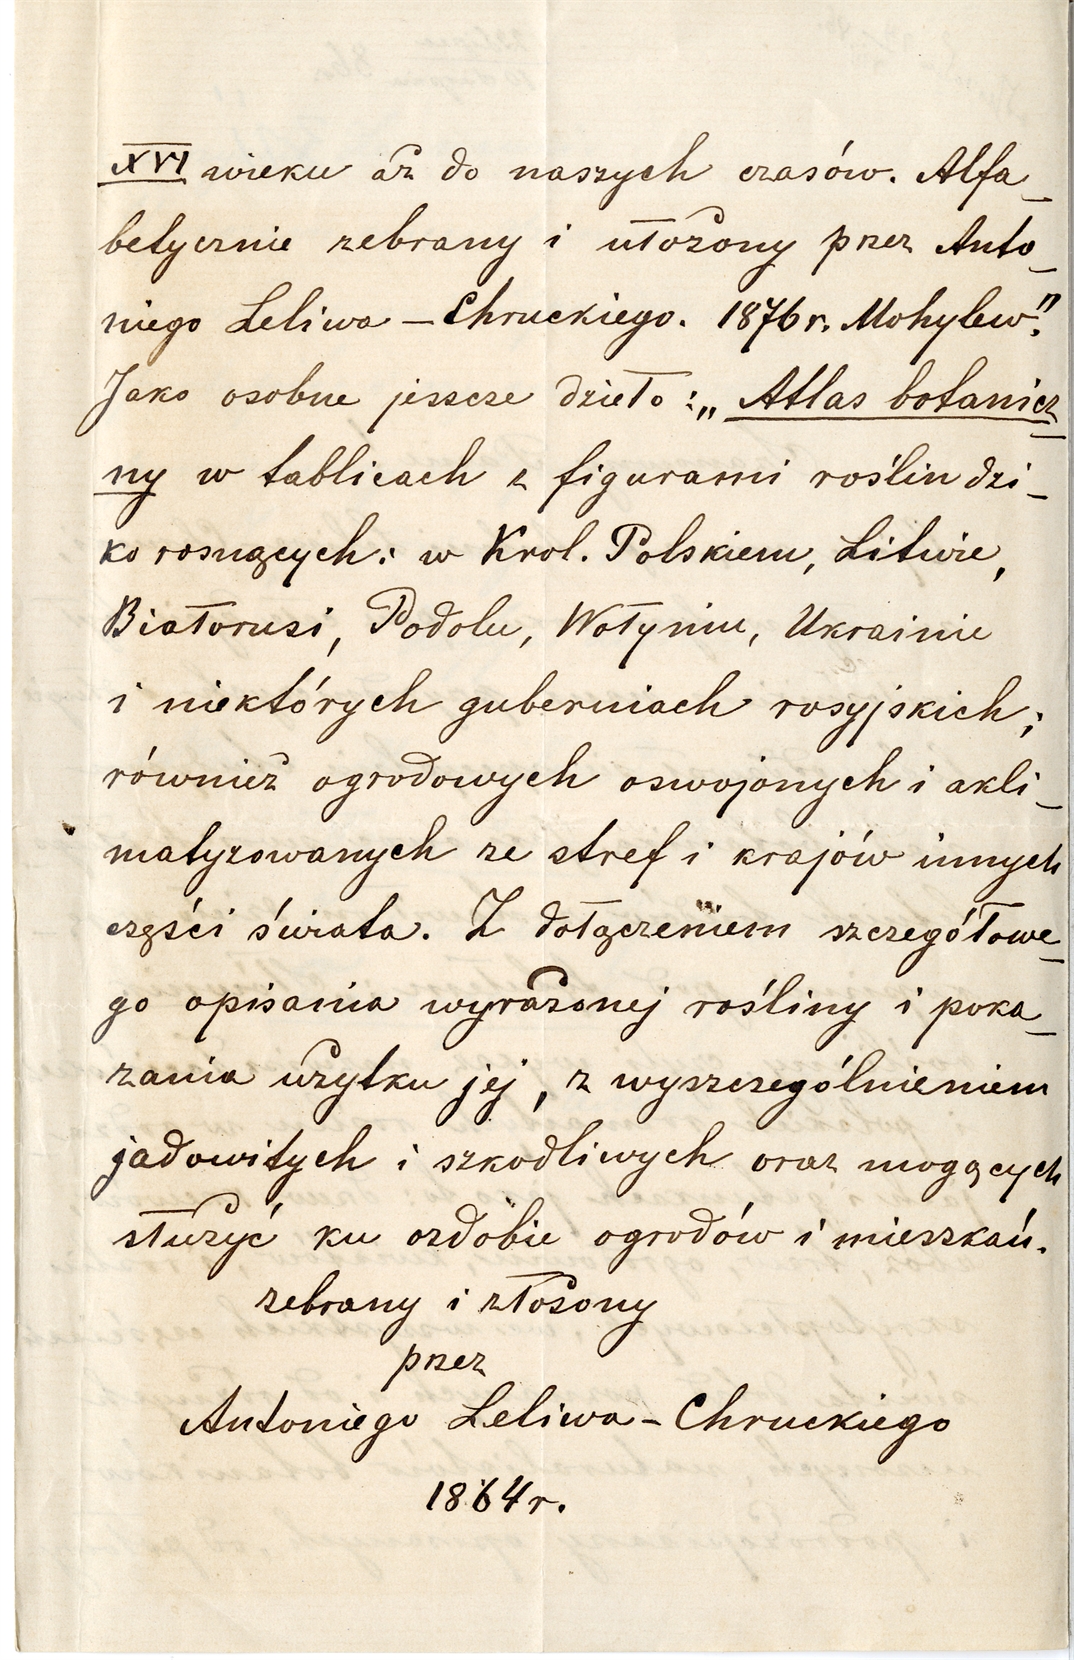 XVI wieku aż do naszych czasów. Alfa_
betycznie zebrany i ułożony przez Anto_
niego Leliwa - Chruckiego. 1876 r. Mohylew".
Jako osobne jeszcze dzieło: „Atlas botanicz_
ny w tablicach z figurami roślin dzi_
ko rosnących: w Krol. Polskiem, Litwie,
Białorusi, Podolu, Wołyniu, Ukrainie
i niektórych guberniach rosyjskich;
również ogrodowych oswojonych i akli_
matyzowanych ze stref i krajów innych
części świata. Z dołączeniem szczegółowe_
go opisania wyrażonej rośliny i poka_
zania użytku jej, z wyszczególnieniem
jadowitych i szkodliwych oraz mogących
służyć ku ozdobie ogrodów i mieszkań.
zebrany i złożony
przez
Antoniego Leliwa - Chruckiego
1864 r.